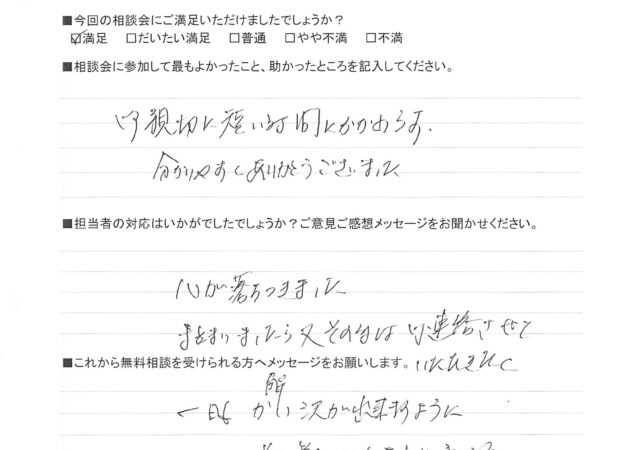 ■今回の相談会にご満足いただけましたでしょうか？
☑満足 □だいたい満足 □普通 □やや不満 □不満
■相談会に参加して最もよかったこと、助かったところを記入してください。
御親切に短い時間にかかわらず、
分かりやすくありがとうございました
■担当者の対応はいかがでしたでしょうか？ご意見ご感想メッセージをお聞かせください。
心が落ちつきました
ましたら又その旨は御連絡させて
いただきたく
■これから無料相談を受けられる方へメッセージをお願いします。
解
一日も かい決が出来るように